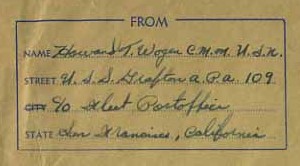 FROM
NAME Howard T. Woger C.M.M. U.S.N.
STREET U.S.S. Grafton A.P.A. 109
CITY c/o Fleet Postoffice
STATE San Francisco, California